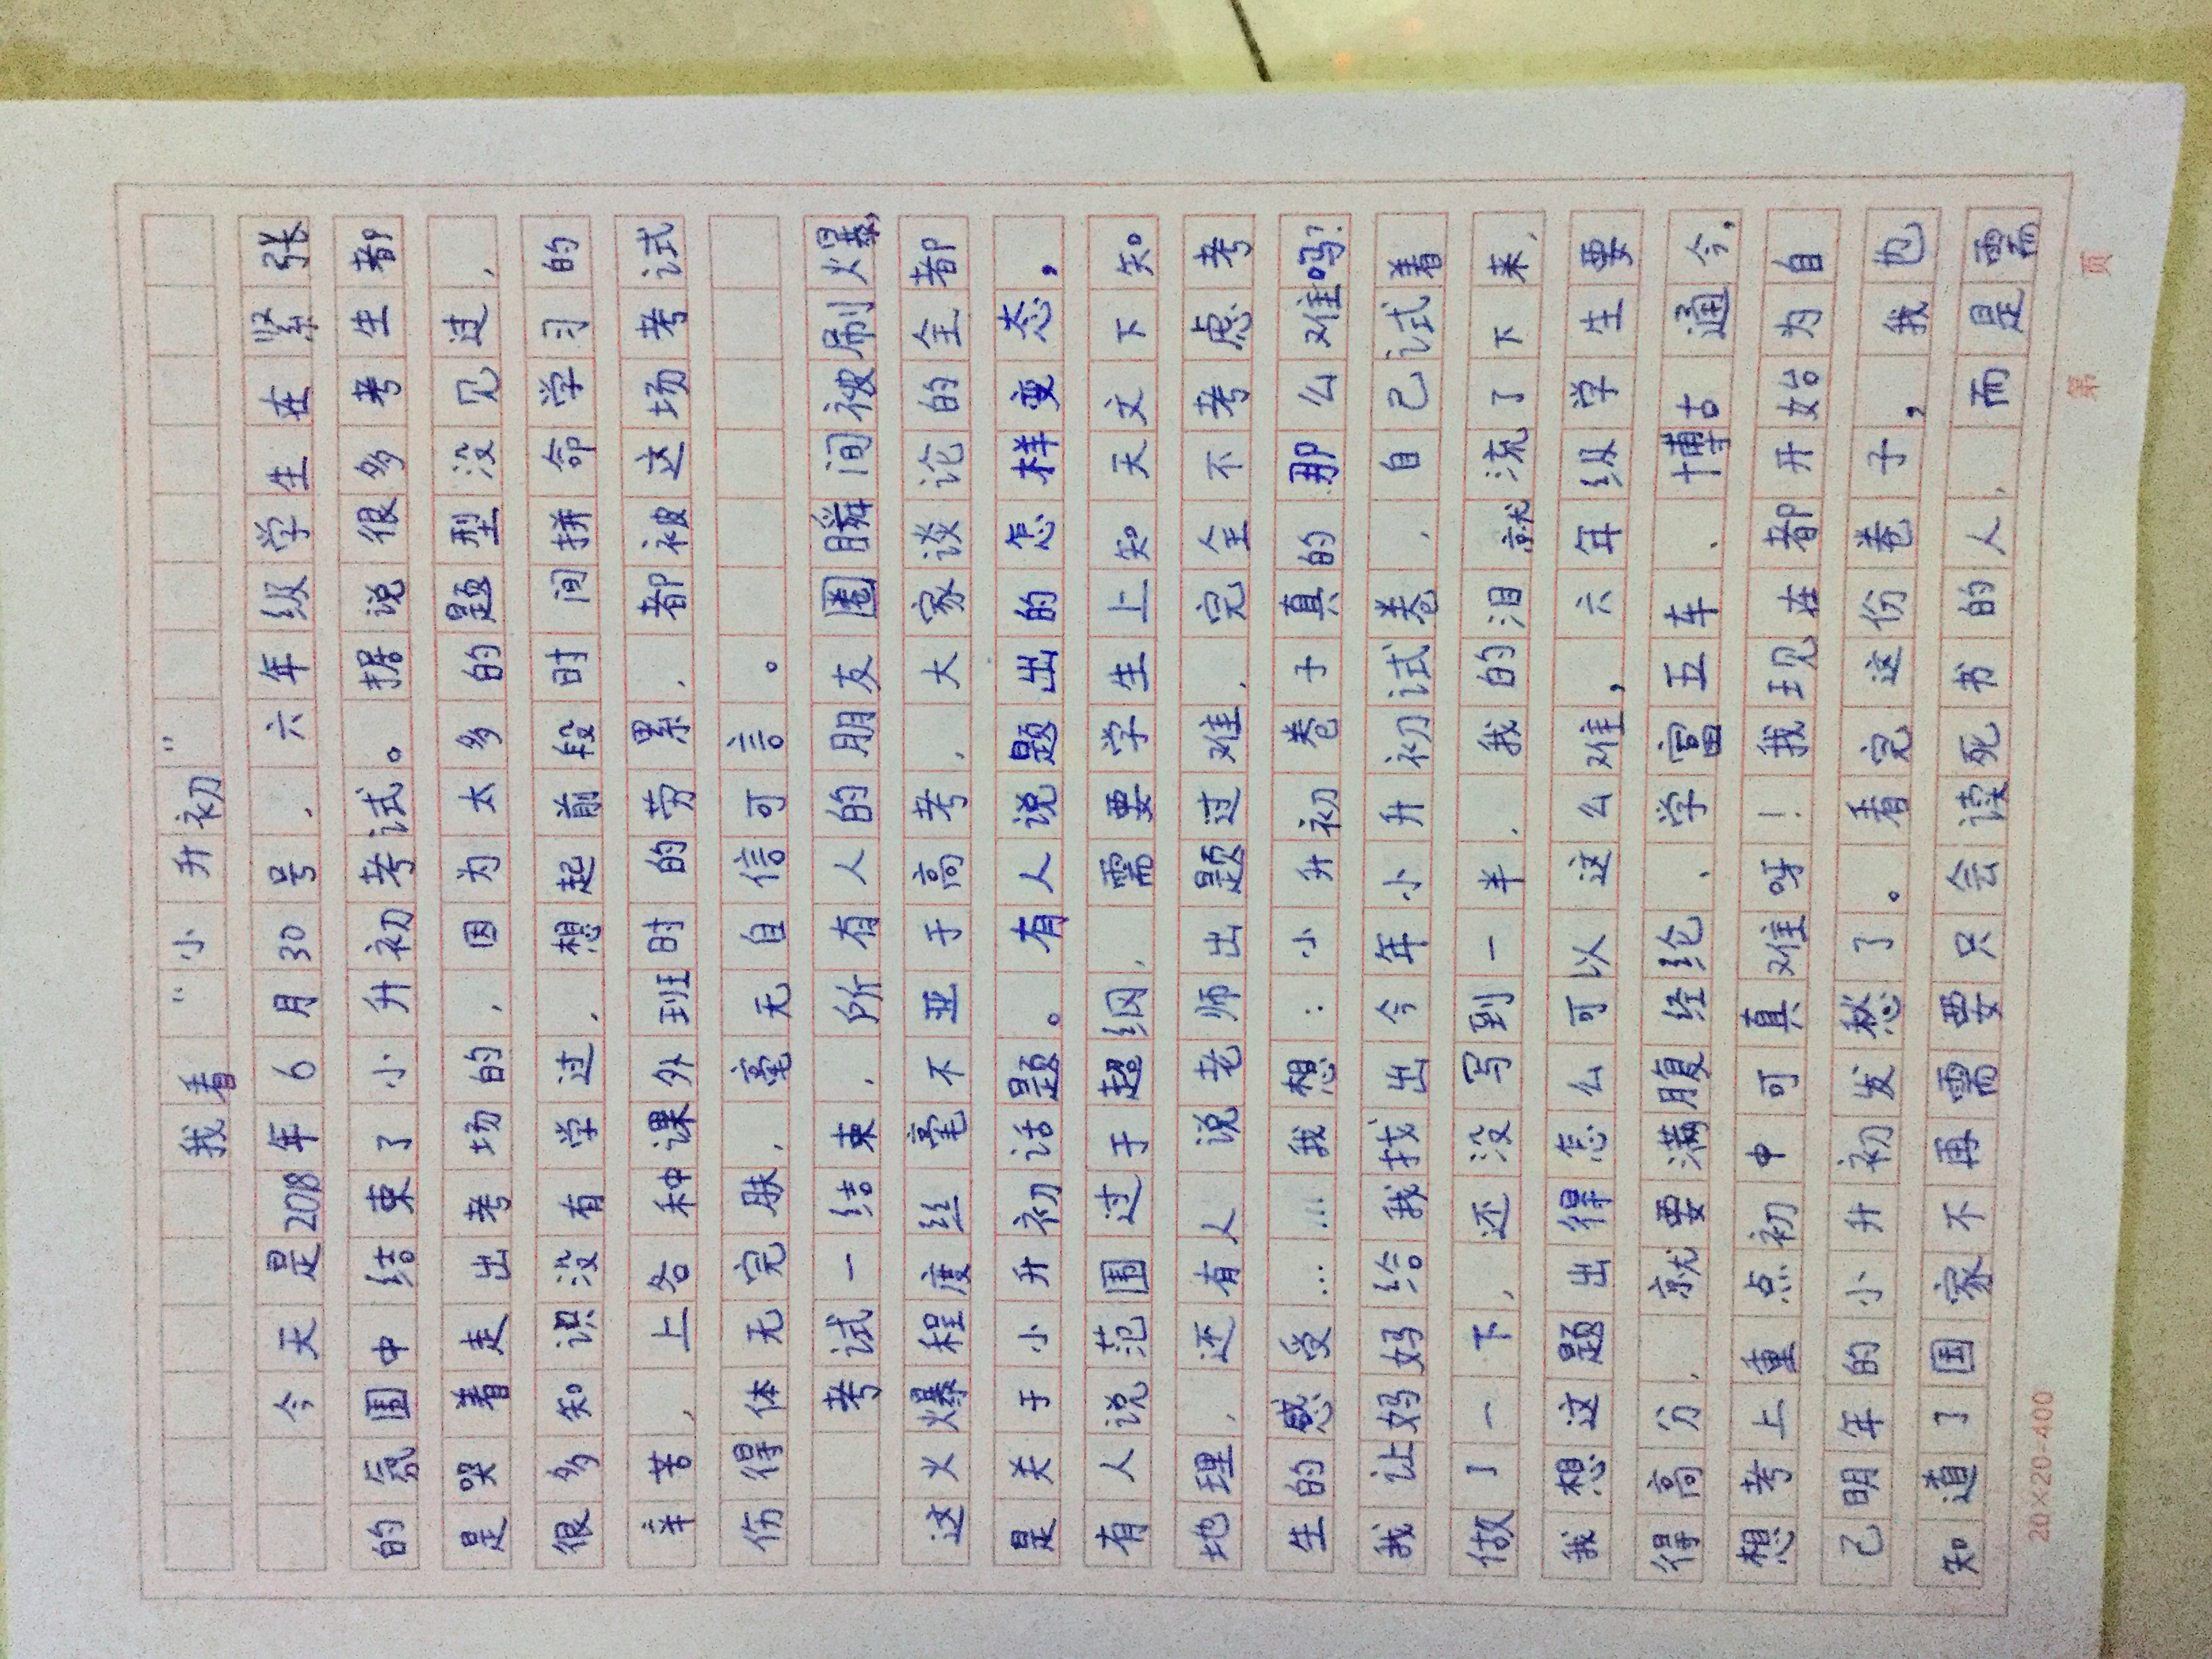 我看“小升初”
今天是2018年6月30号，六年级学生在紧张
的氛围中结束了小升初考试。据说很多考生都
是哭着走出考场的，因为太多的题型没见过，
很多知识没有学过，想起前段时间拼命学习的
辛苦，上各种课外班时的劳累，都被这场考试
伤得体无完肤，毫无自信可言。
考试一结束，所有人的朋友圈瞬间被刷爆，
这火爆程度丝毫不亚于高考，大家谈论的全都
是关于小升初话题。有人说题出的怎样变态，
有人说范围过于超纲，需要学生上知天文下知
地理，还有人说老师出题过难，完全不考虑考
生的感受……我想：小升初卷子真的那么难吗？
我让妈妈给我找出今年小升初试卷，自己试着
做了一下，还没写到一半，我的泪就流了下来，
我想这题出得怎么可以这么难，六年级学生要
得高分，就要满腹经纶、学富五车、博古通今，
想考上重点初中可真难呀！我现在都开始为自
己明年的小升初发愁了。看完这份卷子，我也
知道了国家不再需要只会读死书的人，而是需
20×20=400
第 页